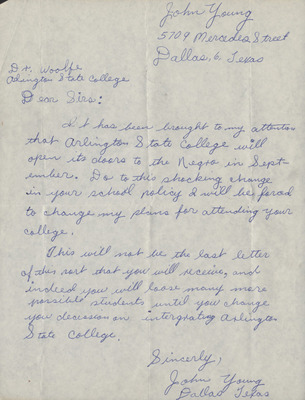 John Young
5709 Mercedes Street
Dallas, 6, Texas
Dr. Woolfe
Arlington State College
Dear Sirs:
It has been brought to my attention
that Arlington State College will
open its doors to the Negro in Sept-
ember. Do to this shocking change
in your school policy I will be forced
to change my plans for attending your
college.
This will not be the last letter
of this sort that you will receive, and
indeed you will loose many more
possible students until you change
you decession on intergrating Arlington
State College.
Sincerly,
John Young
Dallas, Texas